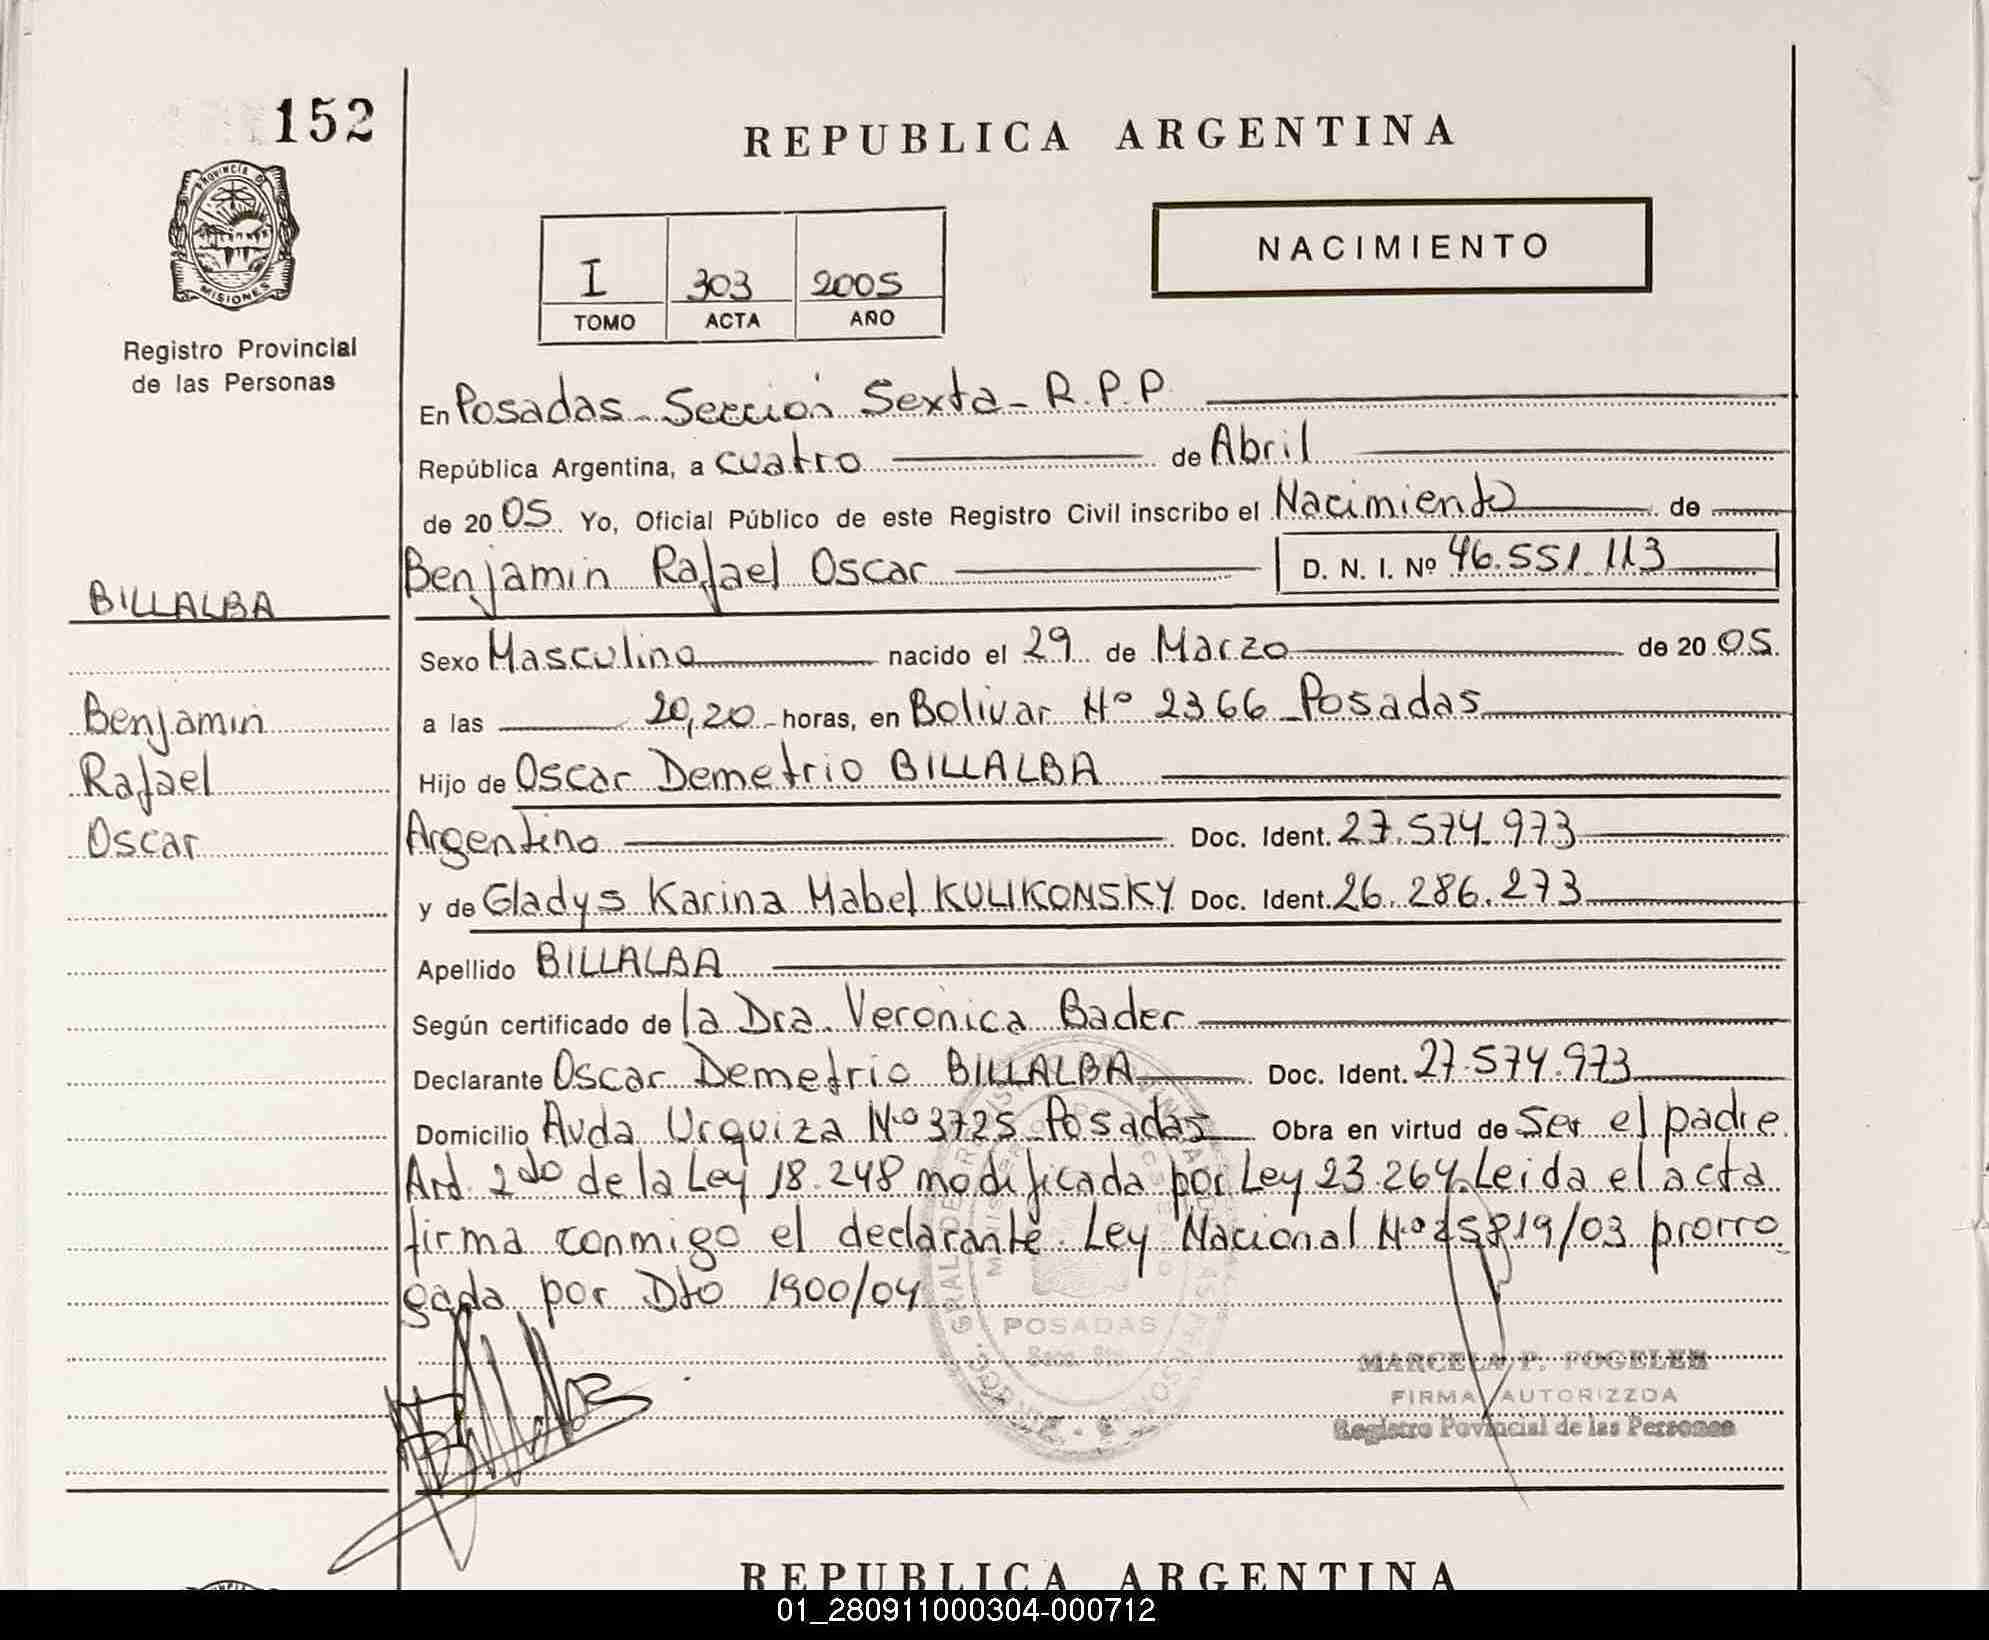 152
REPUBLICA ARGENTINA
PROVINCIA D
MISIONES
NACIMIENTO
I 303 2005
TOMO ACTA AÑO
Registro Provincial
de las Personas
En Posadas Sección Sexta - R.P.P.
República Argentina, a cuatro de Abril
de 20 05 Yo, Oficial Público de este Registro Civil inscribo el Nacimiento de
Benjamin Rafael Oscar D. N. I. Nº 46.551.113
BILLALBA
Sexo Masculino nacido el 29 de Marzo de 20 05.
Benjamin
a las 20,20 horas, en Bolivar Nº 2366 Posadas
Rafael
Hijo de Oscar Demetrio BILLALBA
Oscar
Argentino Doc. Ident. 27.574.973
y de Gladys Karina Mabel KULIKONSKY Doc. Ident. 26.286.273
Apellido BILLALBA
Según certificado de la Dra. Veronica Bader
Declarante Oscar Demetrio BILLALBA Doc. Ident. 27.574.973
Domicilio Avda Urquiza Nº 3725 Posadas Obra en virtud de Ser el padre.
Art. 2do de la Ley 18.248 modificada por Ley 23.264. Leida el acta
firma conmigo el declarante. Ley Nacional Nº 25819/03 prorro
gada por Dto 1900/04
POSADAS
MARCELA P. FOGELER
FIRMA AUTORIZZDA
Registro Povincial de las Personas
REPUBLICA ARGENTINA
01_280911000304-000712